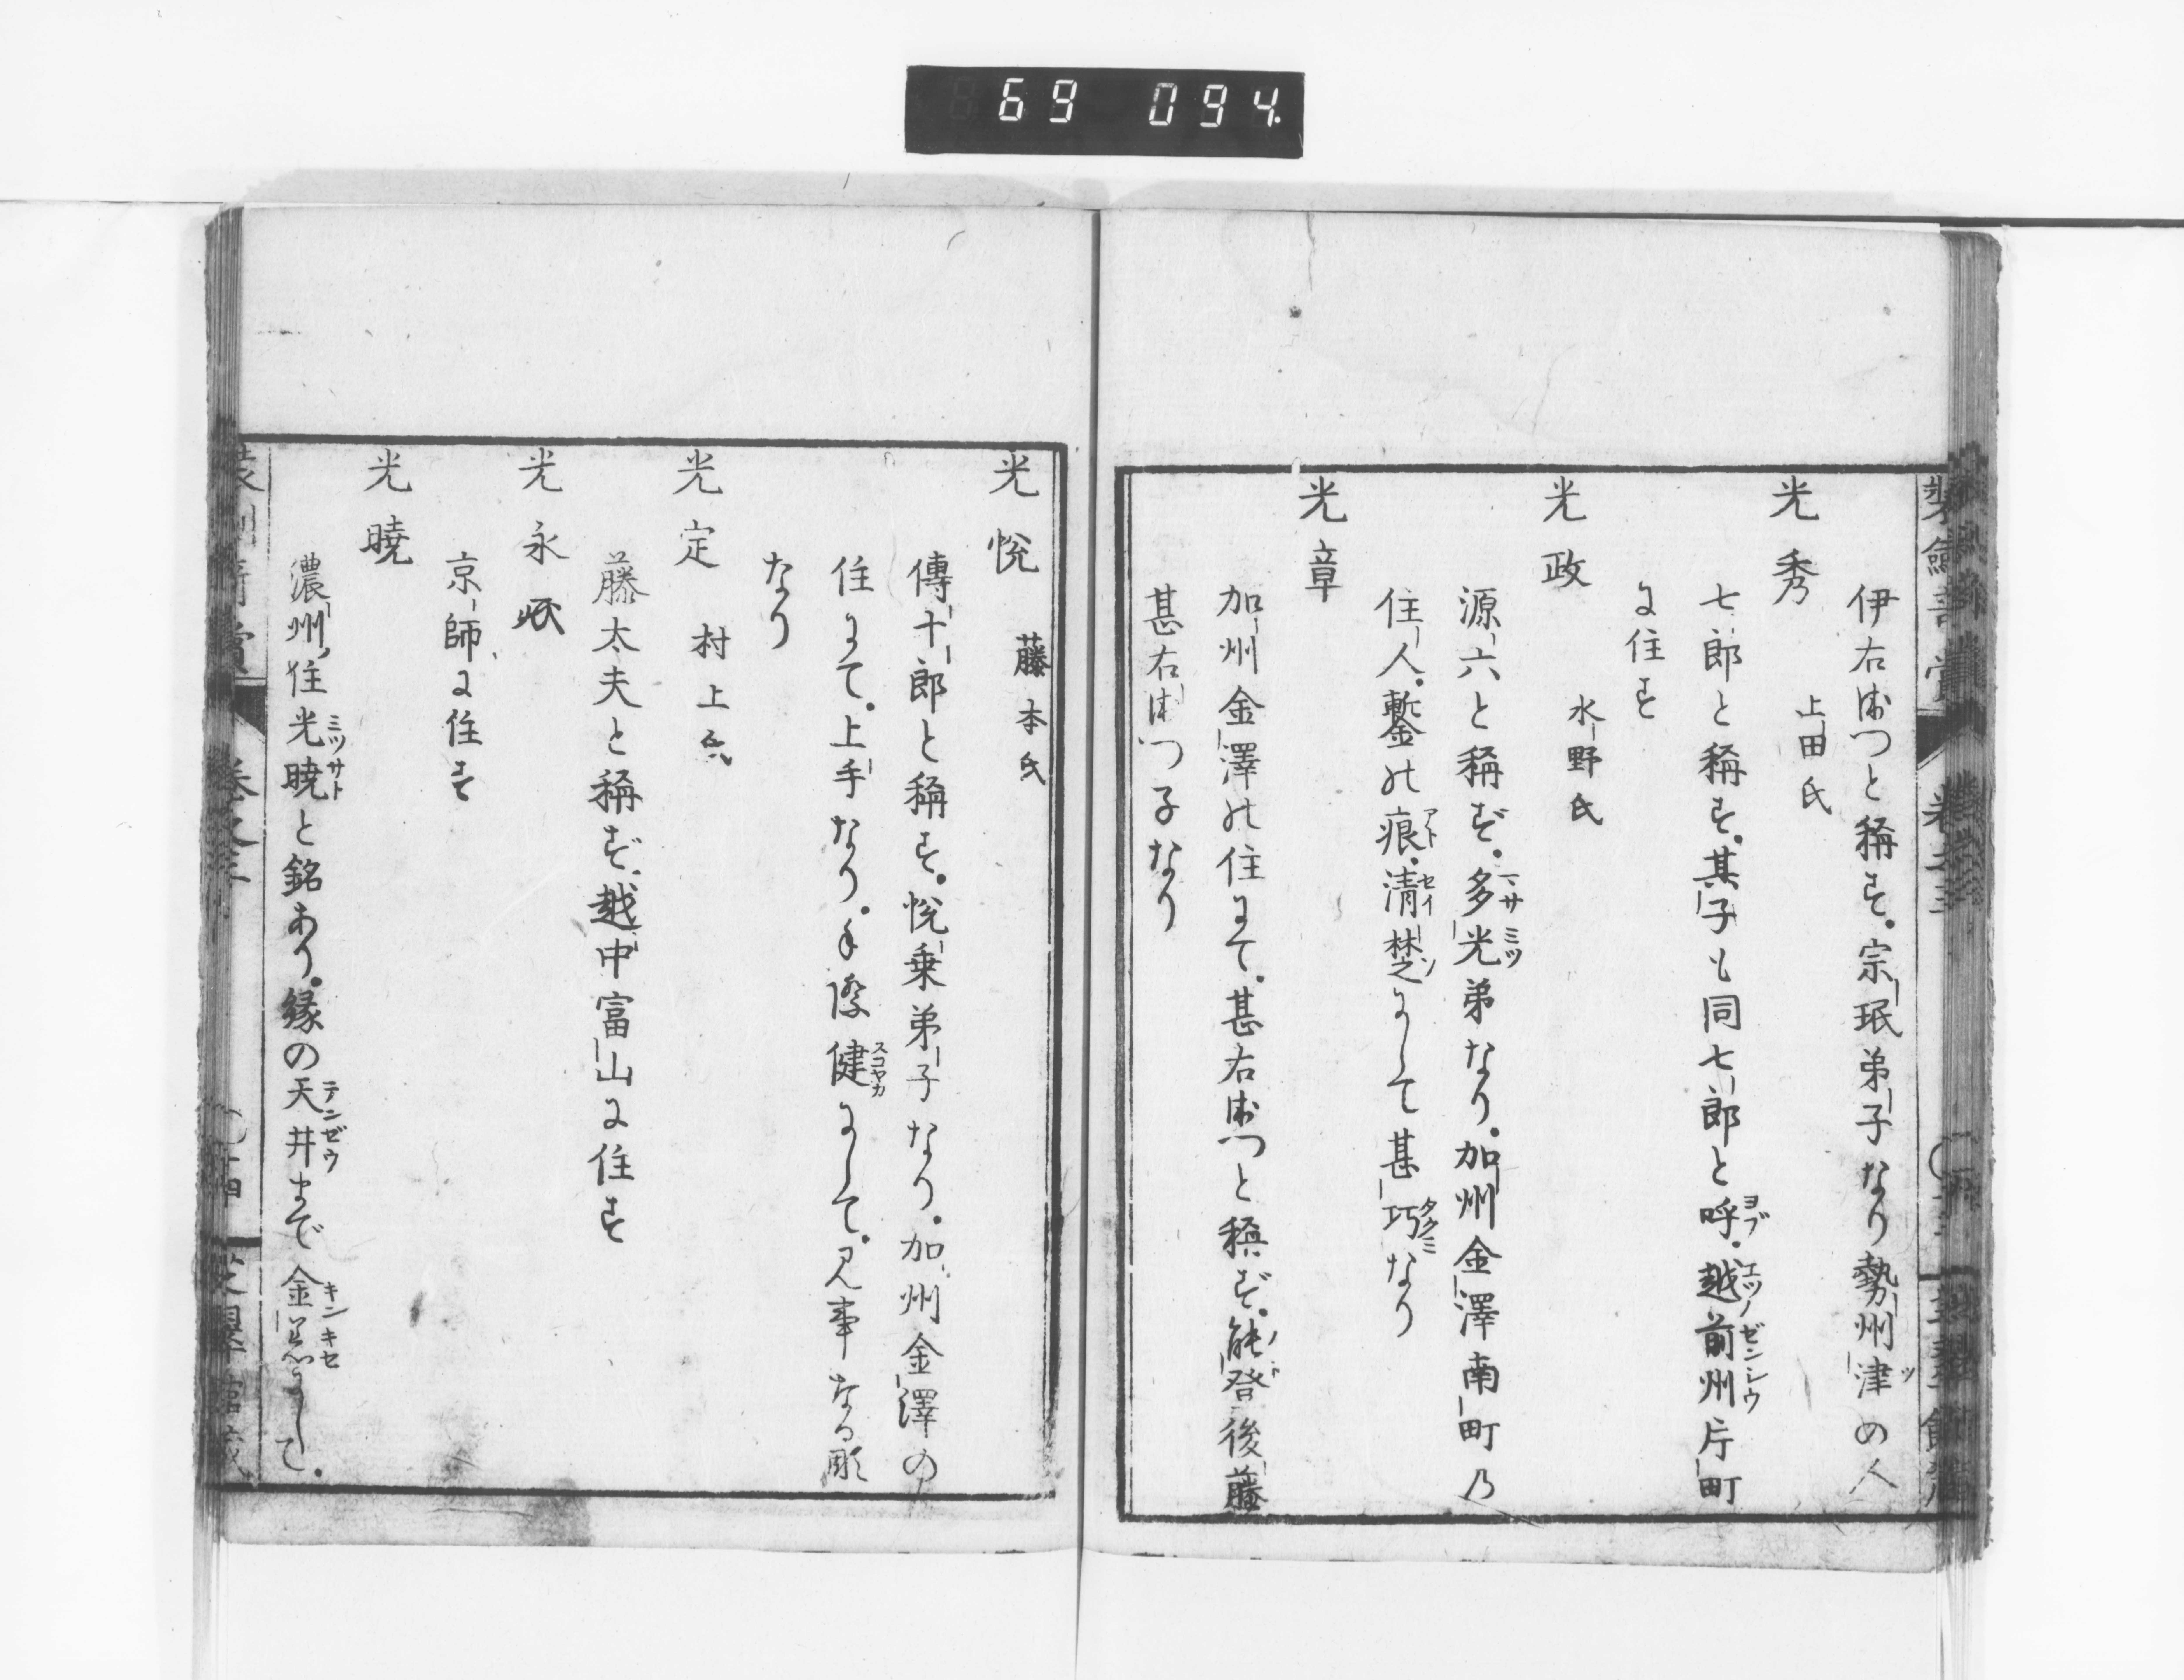 69 094.
伊右衛門と稱す。宗珉弟子なり勢州津の人
光秀 上田氏
七郎と稱す。其子も同七郎と呼。越前州片町
に住す
光政 水野氏
源六と稱す。多光弟なり。加州金澤南町乃
住人。鏨の痕。清楚にして甚巧なり
光章
加州金澤の住にて。甚右衛門と稱す。能登後藤
甚右衛門子なり
光悦 藤本氏
傳十郎と稱す。悦乗弟子なり。加州金澤の
住にて。上手なり。手際健にして。見事なる彫
なり
光定 村上氏
藤太夫と稱す。越中富山に住す
光永
京師に住す
光暁
濃州住光暁と銘あり。縁の天井まで金着にして。